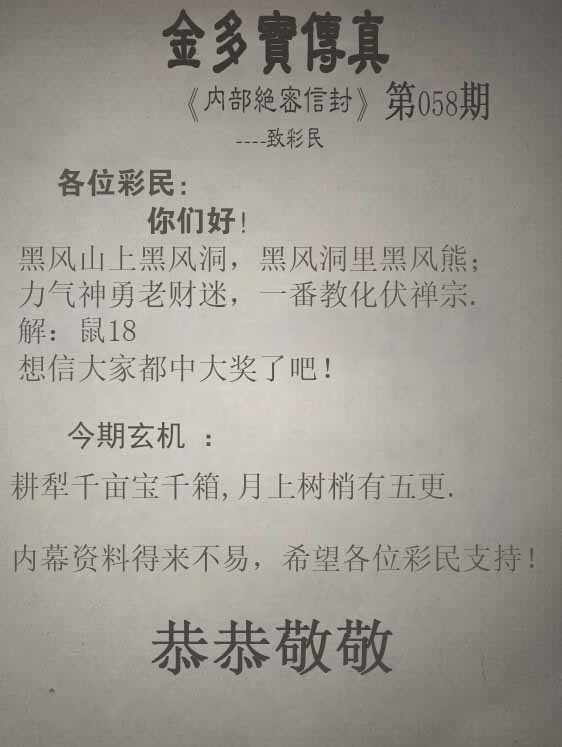 金多寶傳真
《内部絕密信封》第058期
----致彩民
各位彩民:
你们好!
黑风山上黑风洞，黑风洞里黑风熊;
力气神勇老财迷，一番教化伏禅宗.
解：鼠18
想信大家都中大奖了吧!
今期玄机 :
耕犁千亩宝千箱,月上树梢有五更.
内幕资料得来不易，希望各位彩民支持!
恭恭敬敬